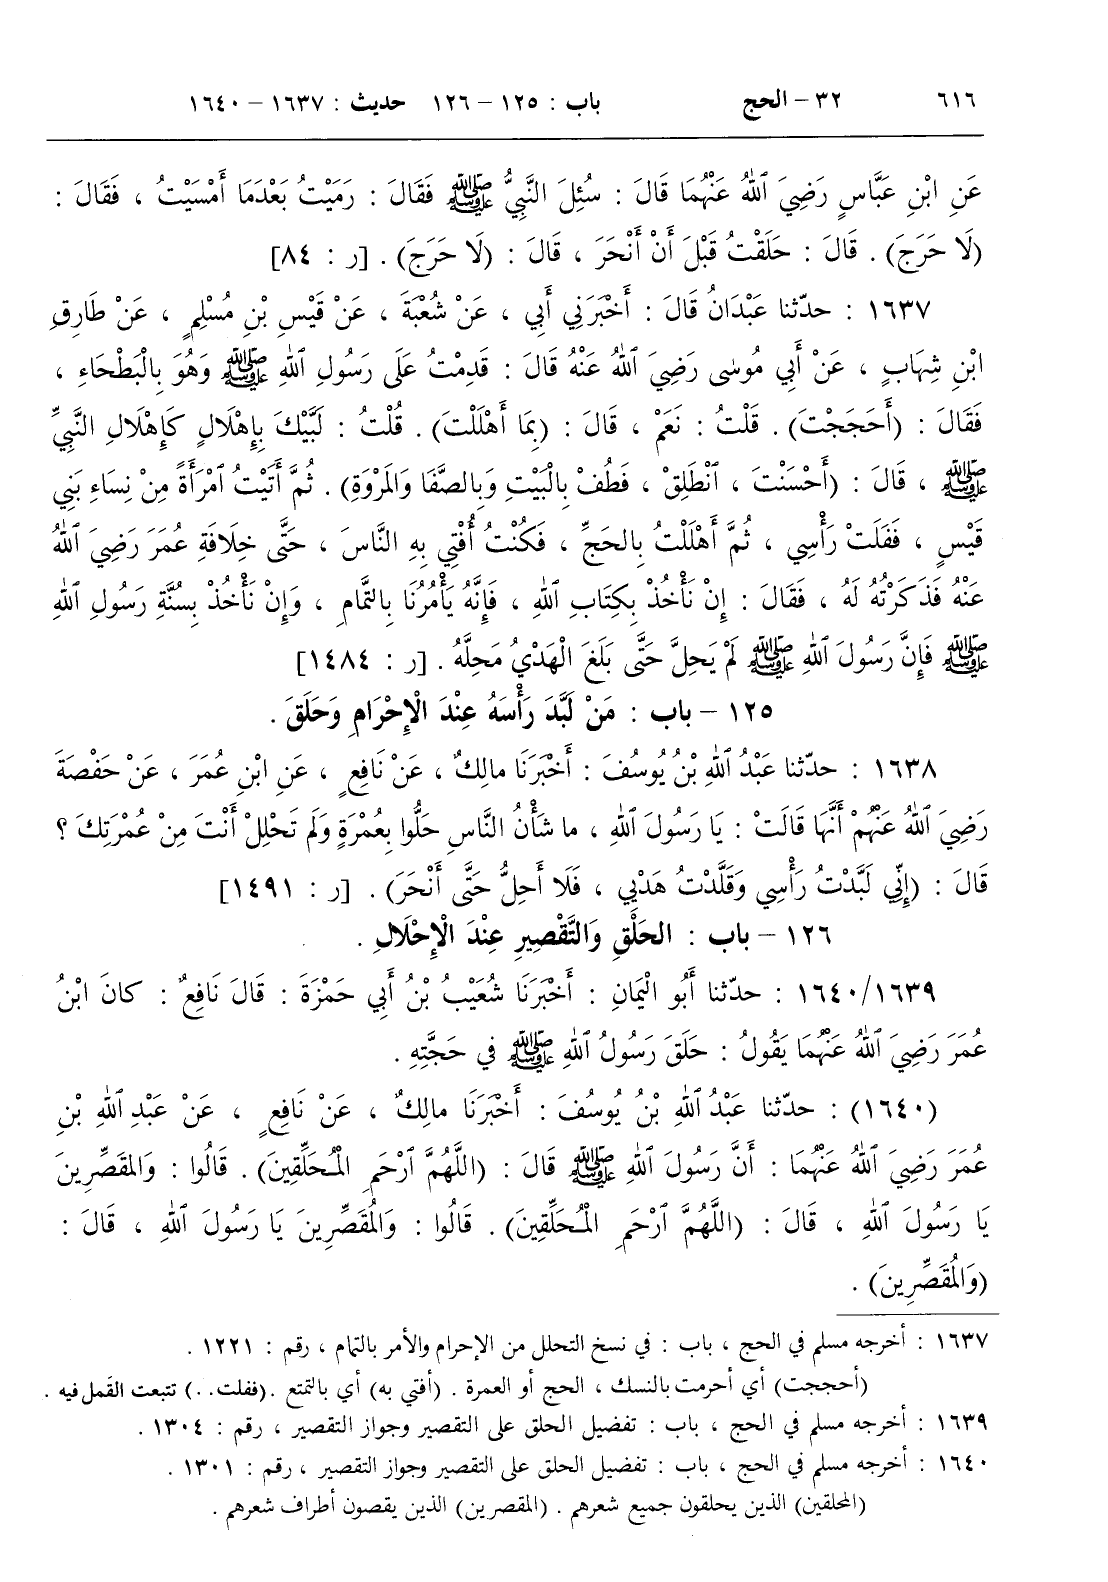 ٦١٦ ٣٢ – الحج باب : ١٢٥ – ١٢٦ حديث : ١٦٣٧ – ١٦٤٠
عَنِ ابْنِ عَبَّاسٍ رَضِيَ ٱللهُ عَنْهُمَا قَالَ : سُئِلَ النَّبِيُّ ﷺ فَقَالَ : رَمَيْتُ بَعْدَمَا أَمْسَيْتُ ، فَقَالَ :
(لَا حَرَجَ) . قَالَ : حَلَقْتُ قَبْلَ أَنْ أَنْحَرَ ، قَالَ : (لَا حَرَجَ) . [ر : ٨٤]
١٦٣٧ : حدّثنا عَبْدَانُ قَالَ : أَخْبَرَنِي أَبِي ، عَنْ شُعْبَةَ ، عَنْ قَيْسِ بْنِ مُسْلِمٍ ، عَنْ طَارِقِ
ابْنِ شِهَابٍ ، عَنْ أَبِي مُوسٰى رَضِيَ ٱللهُ عَنْهُ قَالَ : قَدِمْتُ عَلَى رَسُولِ ٱللهِ ﷺ وَهُوَ بِالْبَطْحَاءِ ،
فَقَالَ : (أَحَجَجْتَ) . قُلْتُ : نَعَمْ ، قَالَ : (بِمَا أَهْلَلْتَ) . قُلْتُ : لَبَّيْكَ بِإِهْلَالٍ كَإِهْلَالِ النَّبِيِّ
ﷺ ، قَالَ : (أَحْسَنْتَ ، ٱنْطَلِقْ ، فَطُفْ بِالْبَيْتِ وَبِالصَّفَا وَالمَرْوَةِ) . ثُمَّ أَتَيْتُ ٱمْرَأَةً مِنْ نِسَاءِ بَنِي
قَيْسٍ ، فَفَلَتْ رَأْسِي ، ثُمَّ أَهْلَلْتُ بِالحَجِّ ، فَكُنْتُ أُفْتِي بِهِ النَّاسَ ، حَتَّى خِلَافَةِ عُمَرَ رَضِيَ ٱللهُ
عَنْهُ فَذَكَرْتُهُ لَهُ ، فَقَالَ : إِنْ نَأْخُذْ بِكِتَابِ ٱللهِ ، فَإِنَّهُ يَأْمُرُنَا بِالتَّمامِ ، وَإِنْ نَأْخُذْ بِسُنَّةِ رَسُولِ ٱللهِ
ﷺ فَإِنَّ رَسُولَ ٱللهِ ﷺ لَمْ يَحِلَّ حَتَّى بَلَغَ الْهَدْيُ مَحِلَّهُ . [ر : ١٤٨٤]
١٢٥ – باب : مَنْ لَبَّدَ رَأْسَهُ عِنْدَ الْإِحْرَامِ وَحَلَقَ .
١٦٣٨ : حدّثنا عَبْدُ ٱللهِ بْنُ يُوسُفَ : أَخْبَرَنَا مالِكٌ ، عَنْ نَافِعٍ ، عَنِ ابْنِ عُمَرَ ، عَنْ حَفْصَةَ
رَضِيَ ٱللهُ عَنْهُمْ أَنَّهَا قَالَتْ : يَا رَسُولَ ٱللهِ ، ما شَأْنُ النَّاسِ حَلُّوا بِعُمْرَةٍ وَلَم تَحْلِلْ أَنْتَ مِنْ عُمْرَتِكَ ؟
قَالَ : (إِنِّي لَبَّدْتُ رَأْسِي وَقَلَّدْتُ هَدْيِي ، فَلَا أَحِلُّ حَتَّى أَنْحَرَ) . [ر : ١٤٩١]
١٢٦ – باب : الحَلْقِ وَالتَّقْصِيرِ عِنْدَ الْإِحْلَالِ .
١٦٤٠/١٦٣٩ : حدّثنا أَبُو الْيَمَانِ : أَخْبَرَنَا شُعَيْبُ بْنُ أَبِي حَمْزَةَ : قَالَ نَافِعٌ : كانَ ابْنُ
عُمَرَ رَضِيَ ٱللهُ عَنْهُمَا يَقُولُ : حَلَقَ رَسُولُ ٱللهِ ﷺ فِي حَجَّتِهِ .
(١٦٤٠) : حدّثنا عَبْدُ ٱللهِ بْنُ يُوسُفَ : أَخْبَرَنَا مالِكٌ ، عَنْ نَافِعٍ ، عَنْ عَبْدِ ٱللهِ بْنِ
عُمَرَ رَضِيَ ٱللهُ عَنْهُمَا : أَنَّ رَسُولَ ٱللهِ ﷺ قَالَ : (اللَّهُمَّ ٱرْحَمِ الْمُحَلِّقِينَ) . قَالُوا : وَالمقَصِّرِينَ
يَا رَسُولَ ٱللهِ ، قَالَ : (اللَّهُمَّ ٱرْحَمِ الْمُحَلِّقِينَ) . قَالُوا : وَالْمُقَصِّرِينَ يَا رَسُولَ ٱللهِ ، قَالَ :
(وَالْمُقَصِّرِينَ) .
١٦٣٧ : أخرجه مسلم في الحج ، باب : في نسخ التحلل من الإحرام والأمر بالتمام ، رقم : ١٢٢١ .
(أحججت) أي أحرمت بالنسك ، الحج أو العمرة . (أفتي به) أي بالتمتع . (ففلت..) تتبعت القَمل فيه .
١٦٣٩ : أخرجه مسلم في الحج ، باب : تفضيل الحلق على التقصير وجواز التقصير ، رقم : ١٣٠٤ .
١٦٤٠ : أخرجه مسلم في الحج ، باب : تفضيل الحلق على التقصير وجواز التقصير ، رقم : ١٣٠١ .
(المحلقين) الذين يحلقون جميع شعرهم . (المقصرين) الذين يقصون أطراف شعرهم .